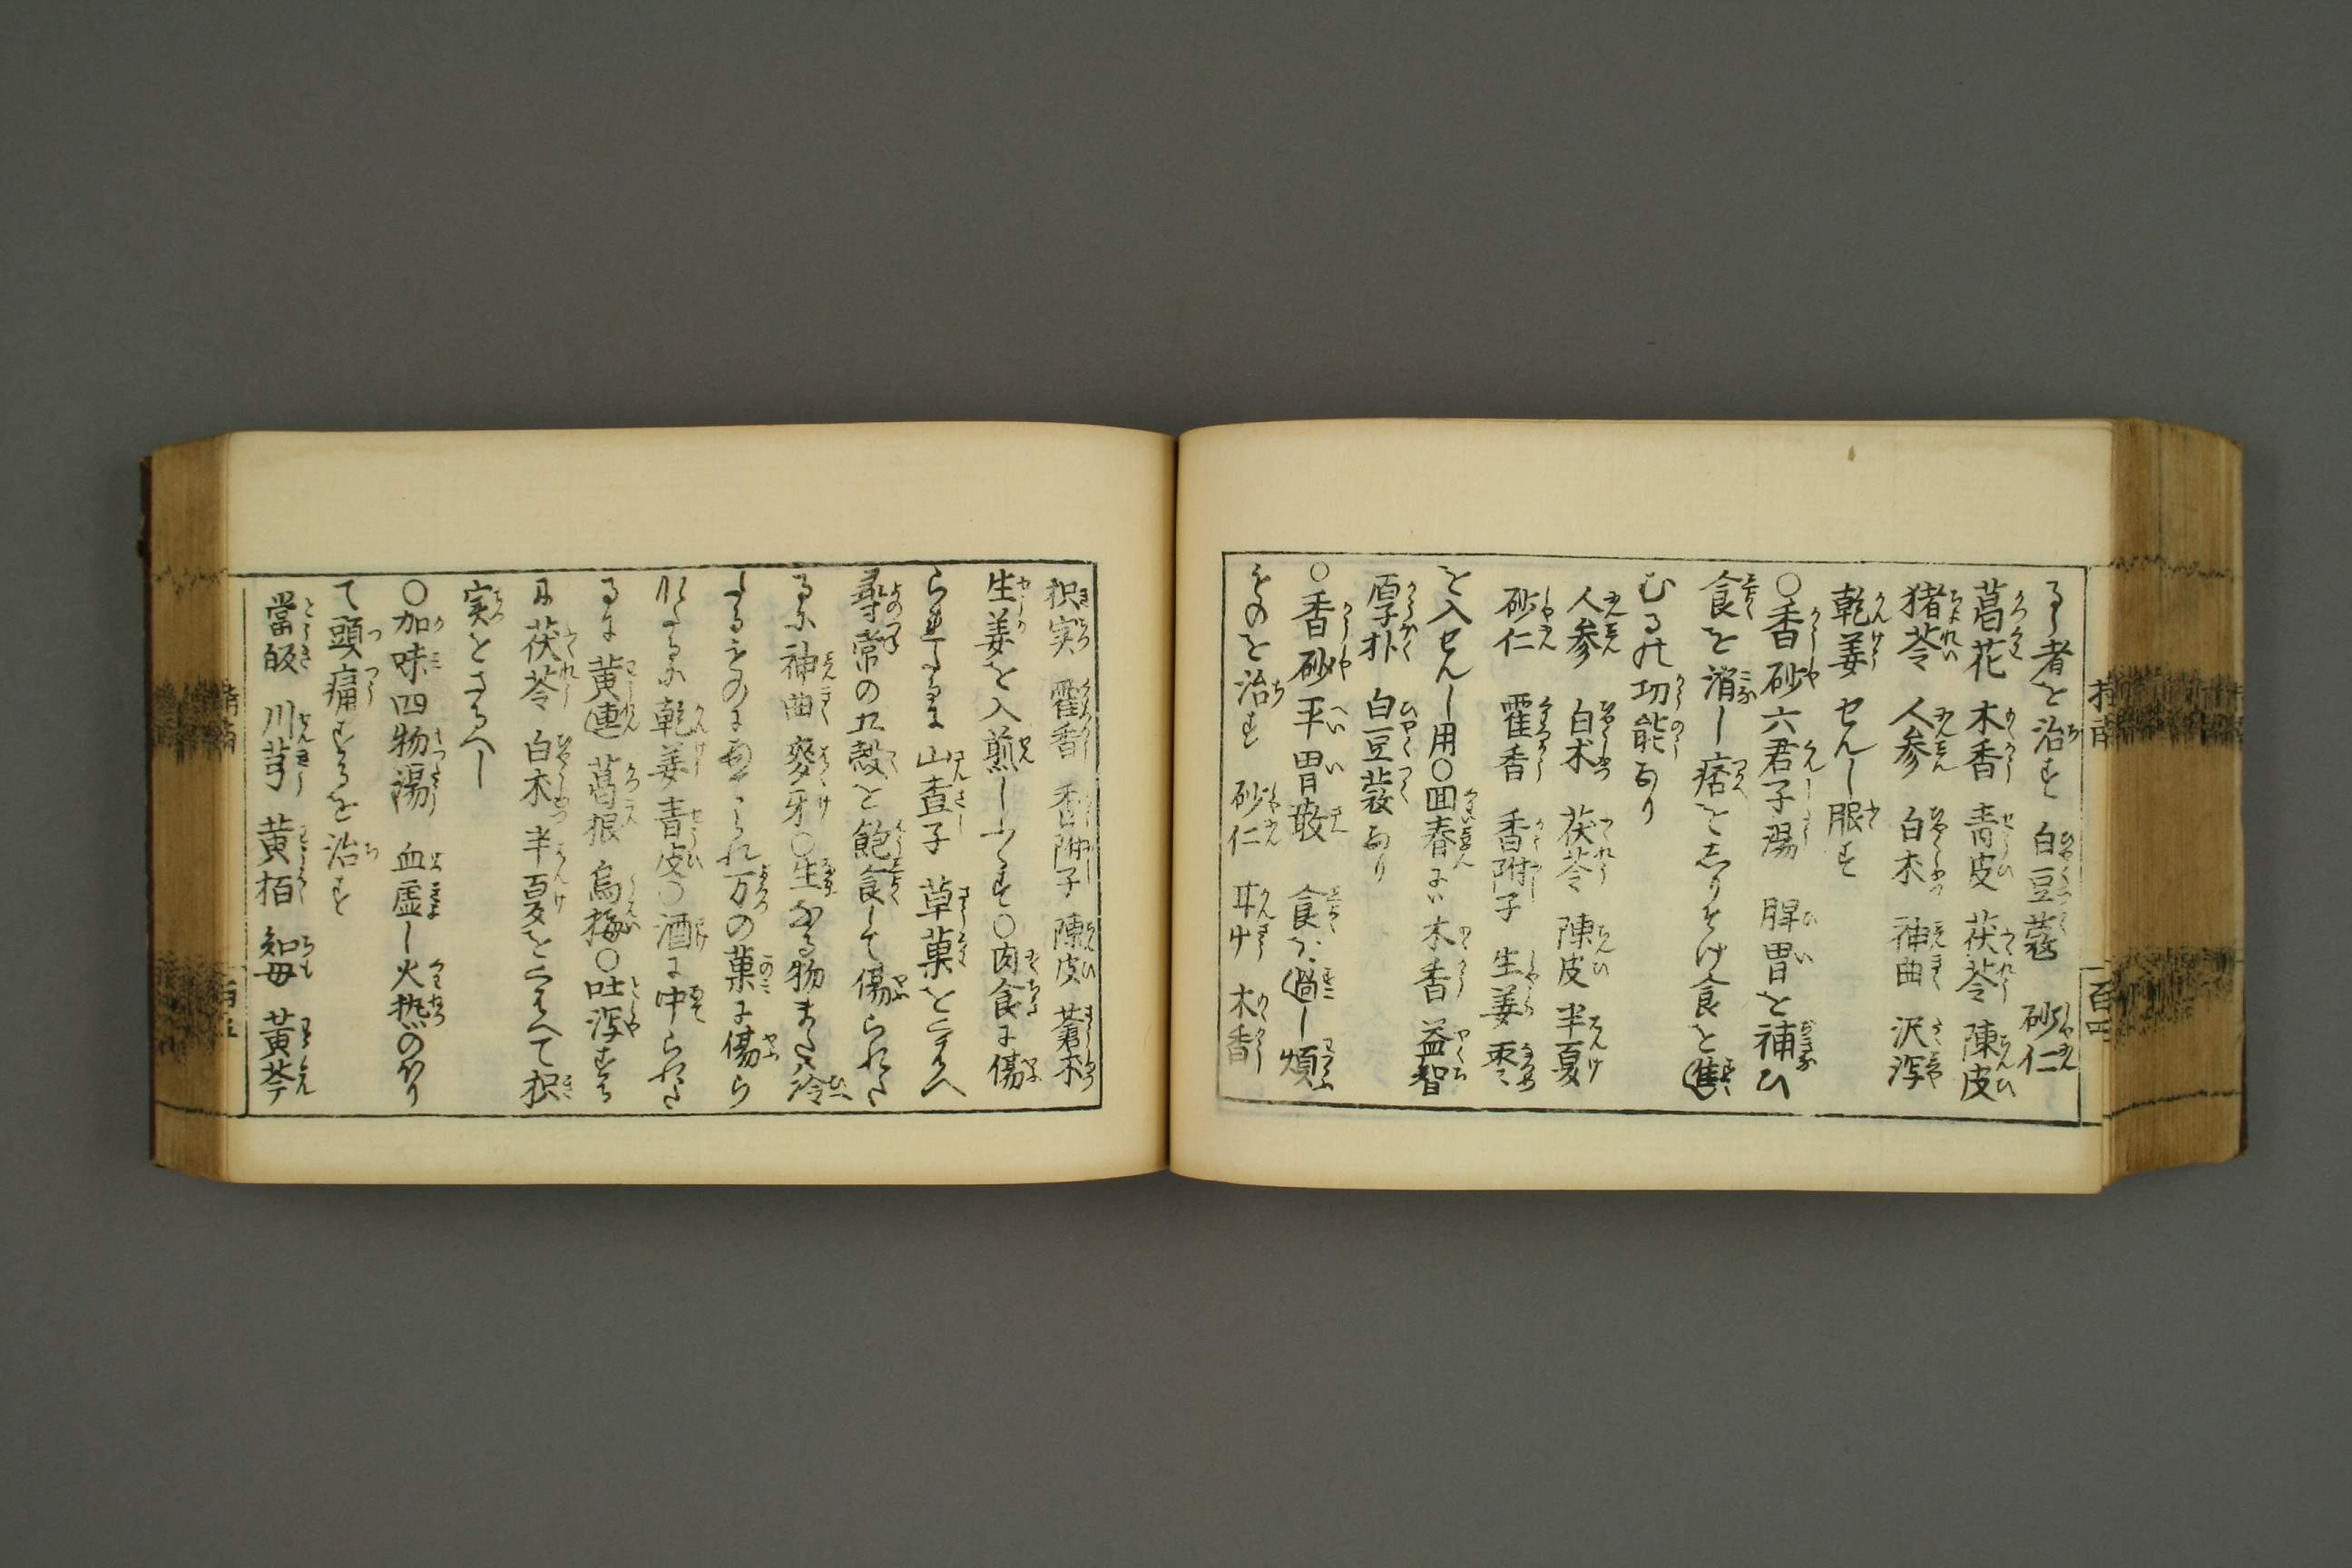 る者を治す　白豆蔲　砂仁
葛花　木香　青皮　茯苓　陳皮
猪苓　人参　白朮　神曲　沢瀉
乾姜　せんし服す
〇香砂六君子湯　脾胃を補ひ
食を消し痞をしりそけ食を進
むるの功能あり
人参　白朮　茯苓　陳皮　半夏
砂仁　霍香　香附子　生姜　棗
を入せんし用〇回春には木香　益智
厚朴　白豆蔲あり
〇香砂平胃散　食に過し煩
ものを治す　砂仁　甘艸　木香
枳実　霍香　香附子　陳皮　蒼朮
生姜を入煎し〇肉食に傷
られたるは山査子　草菓をくはへ
尋常の五穀を飽食して傷られた
るは神曲　麥牙〇生なる物また冷
たるものにやふられ万の菓に傷ら
れたるは乾姜青皮〇酒に中られた
るは黄連　葛根　烏梅〇吐瀉する
には茯苓　白朮　半夏をくはへて枳
実をさるへし
〇加味四物湯　血虚し火热のほり
て頭痛するを治す
當皈　川芎　黄栢　知母　黄芩
百四